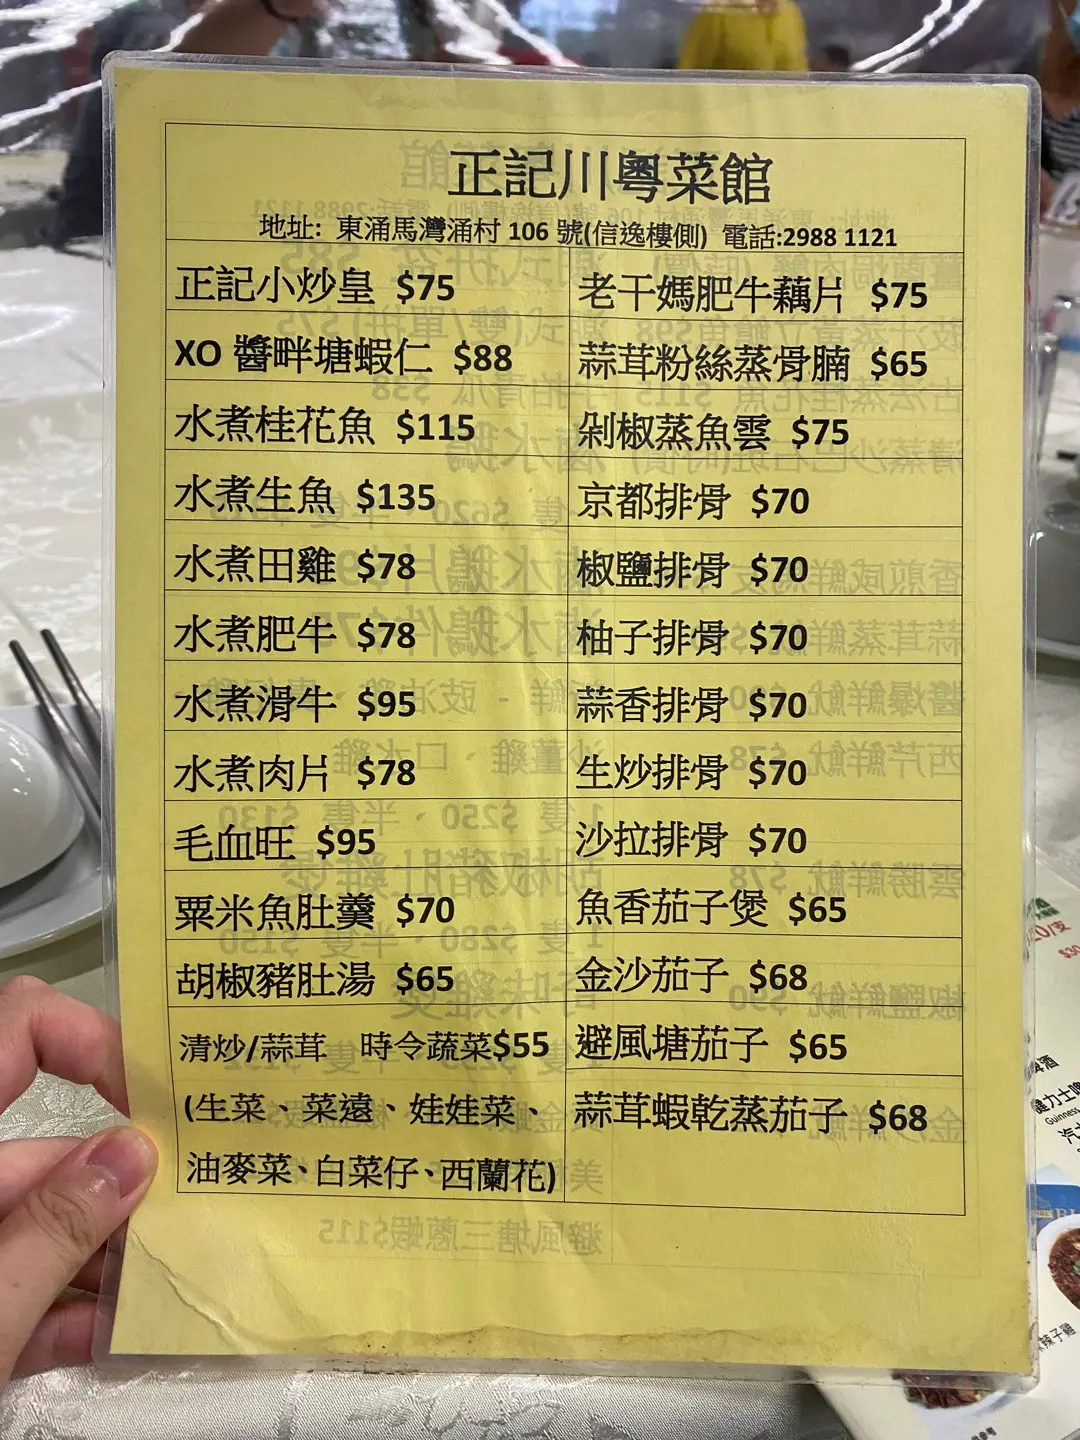 正記川粵菜館
地址: 東涌馬灣涌村 106 號(信逸樓側) 電話:2988 1121
正記小炒皇 $75
XO 醬畔塘蝦仁 $88
水煮桂花魚 $115
水煮生魚 $135
水煮田雞 $78
水煮肥牛 $78
水煮滑牛 $95
水煮肉片 $78
毛血旺 $95
粟米魚肚羹 $70
胡椒豬肚湯 $65
清炒/蒜茸 時令蔬菜$55
(生菜、菜遠、娃娃菜、
油麥菜、白菜仔、西蘭花)
老干媽肥牛藕片 $75
蒜茸粉絲蒸骨腩 $65
剁椒蒸魚雲 $75
京都排骨 $70
椒鹽排骨 $70
柚子排骨 $70
蒜香排骨 $70
生炒排骨 $70
沙拉排骨 $70
魚香茄子煲 $65
金沙茄子 $68
避風塘茄子 $65
蒜茸蝦乾蒸茄子 $68
Guinness
辣子雞